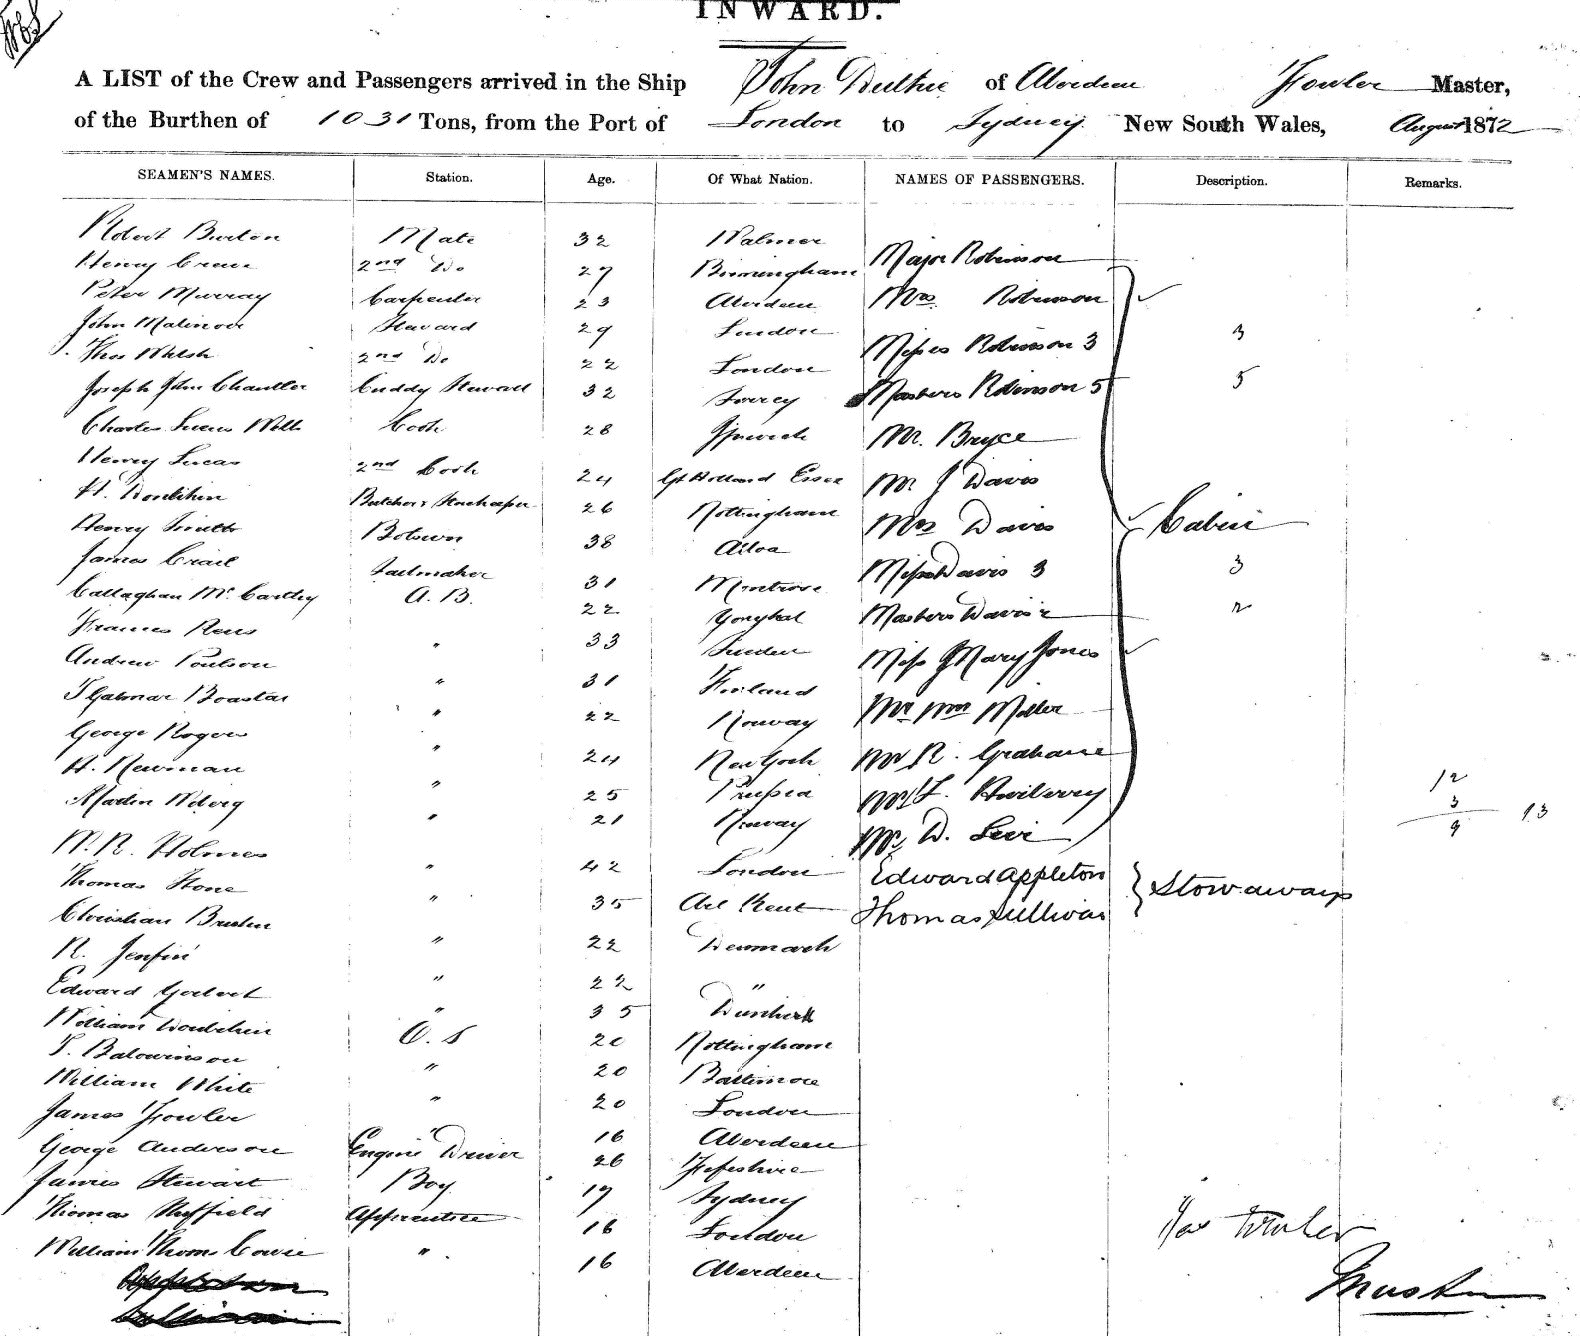 INWARD.
A LIST of the Crew and Passengers arrived in the Ship John Duthie of Aberdeen Fowler Master,
of the Burthen of 1031 Tons, from the Port of London to Sydney New South Wales, August 1872
SEAMEN'S NAMES. Station. Age. Of What Nation. NAMES OF PASSENGERS. Description. Remarks.
Robert Burton Mate 32 Walmer
Major Robinson
Henry 2nd Do 27 Birmingham
Peter Murray Carpenter 23 Aberdeen Mrs Robinson
John Steward 29 London
Misses Robinson 3 3
Thos Walsh 2nd Do 22 London
Joseph John Chantler Cuddy Steward 32 Surrey Masters Robinson 5 5
Charles Cook 28 Ipswich Mr. Bryce
Henry Lucas 2nd Cook 24 Gt Holland Essex Mr J Davis
H. Doublehin Butcher & Storekeeper 26 Nottingham Mrs Davis Cabin
Henry Smith Botswn 38 Alloa
James Crail Sailmaker 31 Montrose Miss Davis 3 3
Callaghan Mc Carthy A. B. 22 Youghal Masters Davis 2 2
Frances Rens " 33 Sweden Miss Mary Jones
Andrew Poulson " 31 Finland
Boastar " 22 Norway Mr Wm Miller
George Rogers " 24 New York Mr R. Grahame
H. Newman " 25 Prussia Mr F.
12
3
9 13
Martin Wiborg " 21 Norway Mr D. Levi
W. R. Holmes " 42 London Edward Appleton
Thomas Stone " 35 Kent Thomas Sullivan Stowaways
Christian " 22 Denmark
R. " 22 "
Edward " 35 Dunkirk
William Doublehin O. S 20 Nottingham
T. Baldwinson " 20 Baltimore
William White " 20 London
James Fowler " 16 Aberdeen
George Anderson Engine Driver 26 Fifeshire
James Stewart Boy 17 Sydney
Thomas Nuffield Apprentice 16 London
Jas Fowler
William Thoms Cowie " 16 Aberdeen
Master